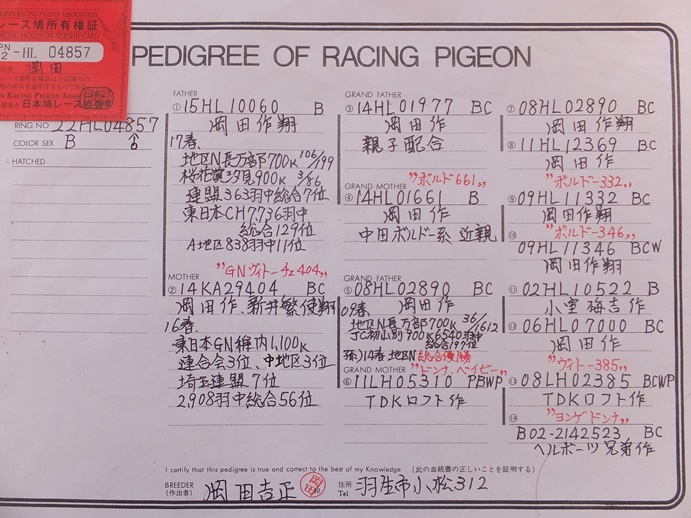 JAPAN RACING PIGEON ASSOCIATION
レース鳩所有権証
RACING PIGEON OWNERSHIP CARD
-HL 04857
岡田
日本鳩レース協会
PEDIGREE OF RACING PIGEON
RING NO 22HL04857
COLOR SEX B ♂
HATCHED
FATHER
①15HL10060 B
岡田作翔
17春、
地区N長万部700K 106/199
桜花賞汐見900K 3/86
連盟363羽中総合7位
東日本CH7,736羽中
総合129位
A地区838羽中11位
"GNヴィトーチェ404"
MOTHER
②14KA29404 BC
岡田作、新井繁使翔
16春、
東日本GN稚内1,100K
連合会3位、中地区3位
埼玉連盟7位
2,908羽中総合56位
GRAND FATHER
③14HL01977 BC
岡田作
親子配合
"ボルドー661"
GRAND MOTHER
④14HL01661 B
岡田作
中田ボルドー系 近親
⑤08HL02890 BC
岡田作
09春、
地区N長万部700K 36/1612
JC初山別900K6540羽中
総合197位
孫)14春地区N総合優勝
"ドンナ、ベイビー"
GRAND MOTHER
⑥11LH05310 PBWP
TDKロフト作
⑦08HL02890 BC
岡田作翔
⑧11HL12369 BC
岡田作
"ボルドー332"
⑨09HL11332 BC
岡田作翔
⑩"ボルドー346"
09HL11346 BCW
岡田作翔
⑪02HL10522 B
小室梅吉作
⑫06HL07000 BC
岡田作
"ヴィトー385"
⑬08LH02385 BCWP
TDKロフト作
⑭"ヨンゲドンナ"
B02-2142523 BC
ヘルボーツ兄弟作
I certify that this pedigree is true and correct to the best of my Knowledge (此の血統書の正しいことを証明する)
BREEDER
(作出者) 岡田吉正
住所
Tel 羽生市小松312